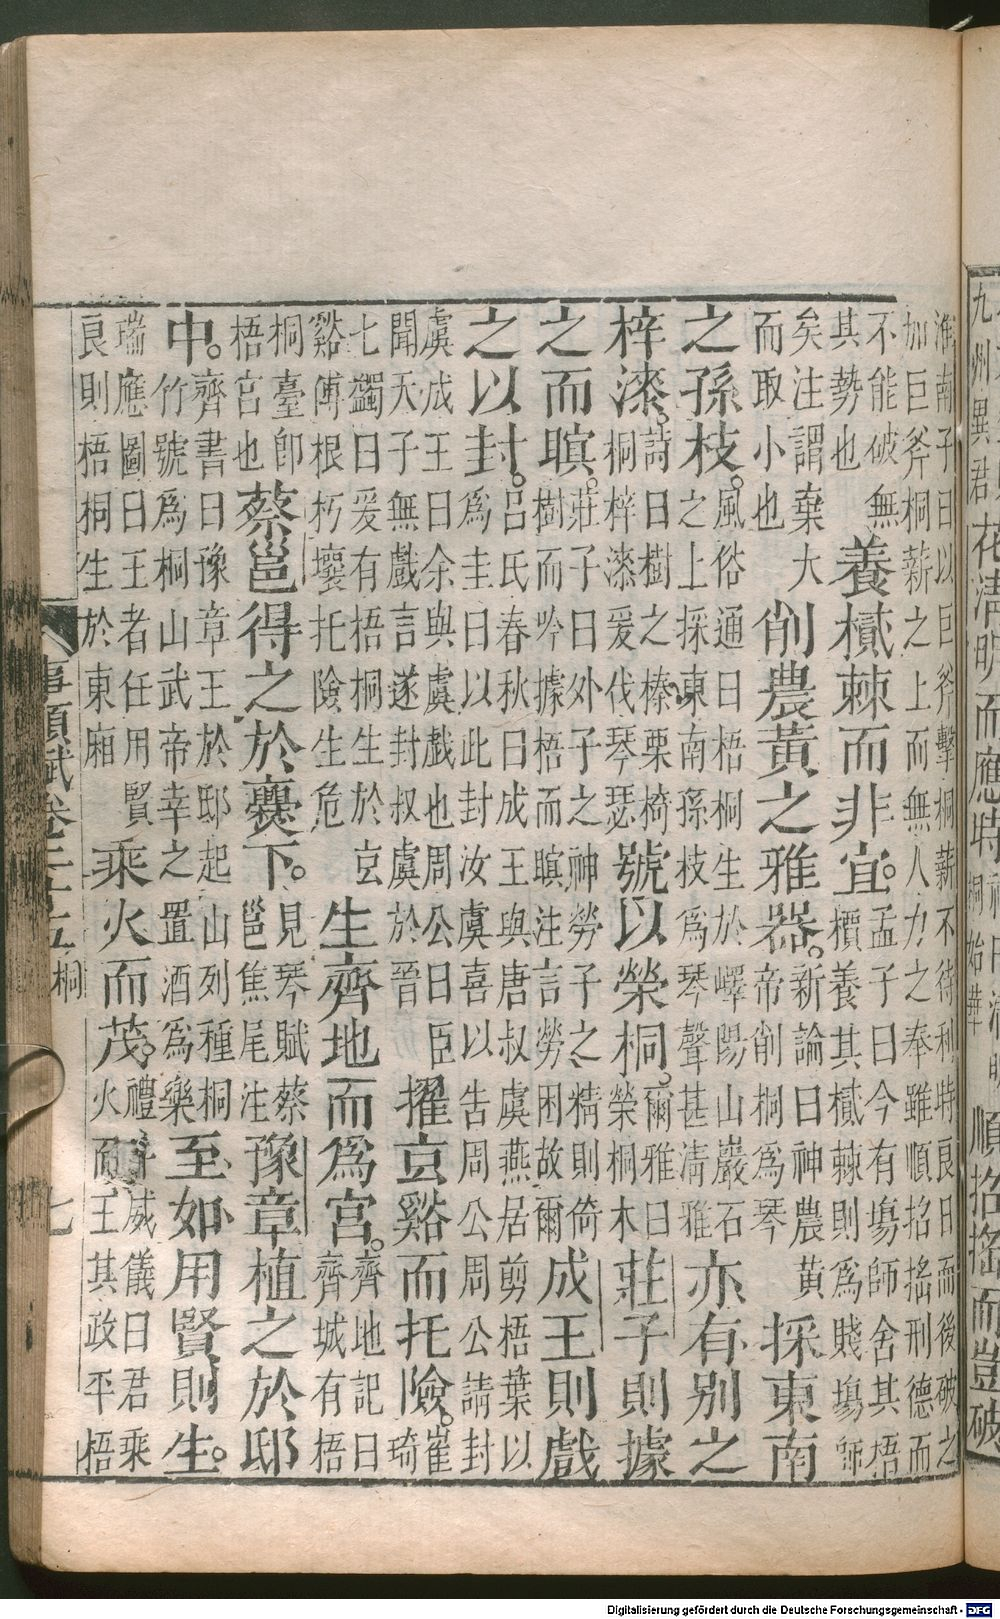 九州異君花清明而應時
桐始華
順招搖而豈破
淮南子曰以巨斧擊桐薪不待利時良日而後破之
加巨斧桐薪之上而無人力之奉雖順招搖刑德而
不能破無
其勢也
養樲棘而非宜。
孟子曰今有場師舍其梧
檟養其樲棘則爲賤場師
矣注謂棄大
而取小也
削農黃之雅器。
新論曰神農黃
帝削桐爲琴
採東南
之孫枝。
風俗通曰梧桐生於嶧陽山巖石
之上採東南孫枝爲琴聲甚清雅
亦有别之
梓漆。
詩曰樹之榛栗椅
桐梓漆爰伐琴瑟
號以榮桐。
爾雅曰
榮桐木
莊子則據
之而瞑。
莊子曰外子之神勞子之精則倚
樹而吟據梧而瞑注言勞困故爾
成王則戲
之以封。
呂氏春秋曰成王與唐叔虞燕居剪梧葉以
爲圭曰以此封汝虞喜以告周公周公請封
虞成王曰余與虞戲也周公曰臣
聞天子無戲言遂封叔虞於晉
擢玄谿而托險。
崔
琦
七蠲曰爰有梧桐生於玄
谿傅根朽壤托險生危
生齊地而爲宮。
齊地記曰
齊城有梧
桐臺卽
梧宮也
蔡邕得之於爨下。
見琴賦蔡
邕焦尾注
豫章植之於邸
中。
齊書曰豫章王於邸起山列種桐
竹號爲桐山武帝幸之置酒爲樂
至如用賢則生。
瑞應圖曰王者任用賢
良則梧桐生於東廂
乘火而茂。
禮斗威儀曰君乘
火而王其政平梧
事類賦卷二十五 桐
七
Digitalisierung gefördert durch die Deutsche Forschungsgemeinschaft - DFG